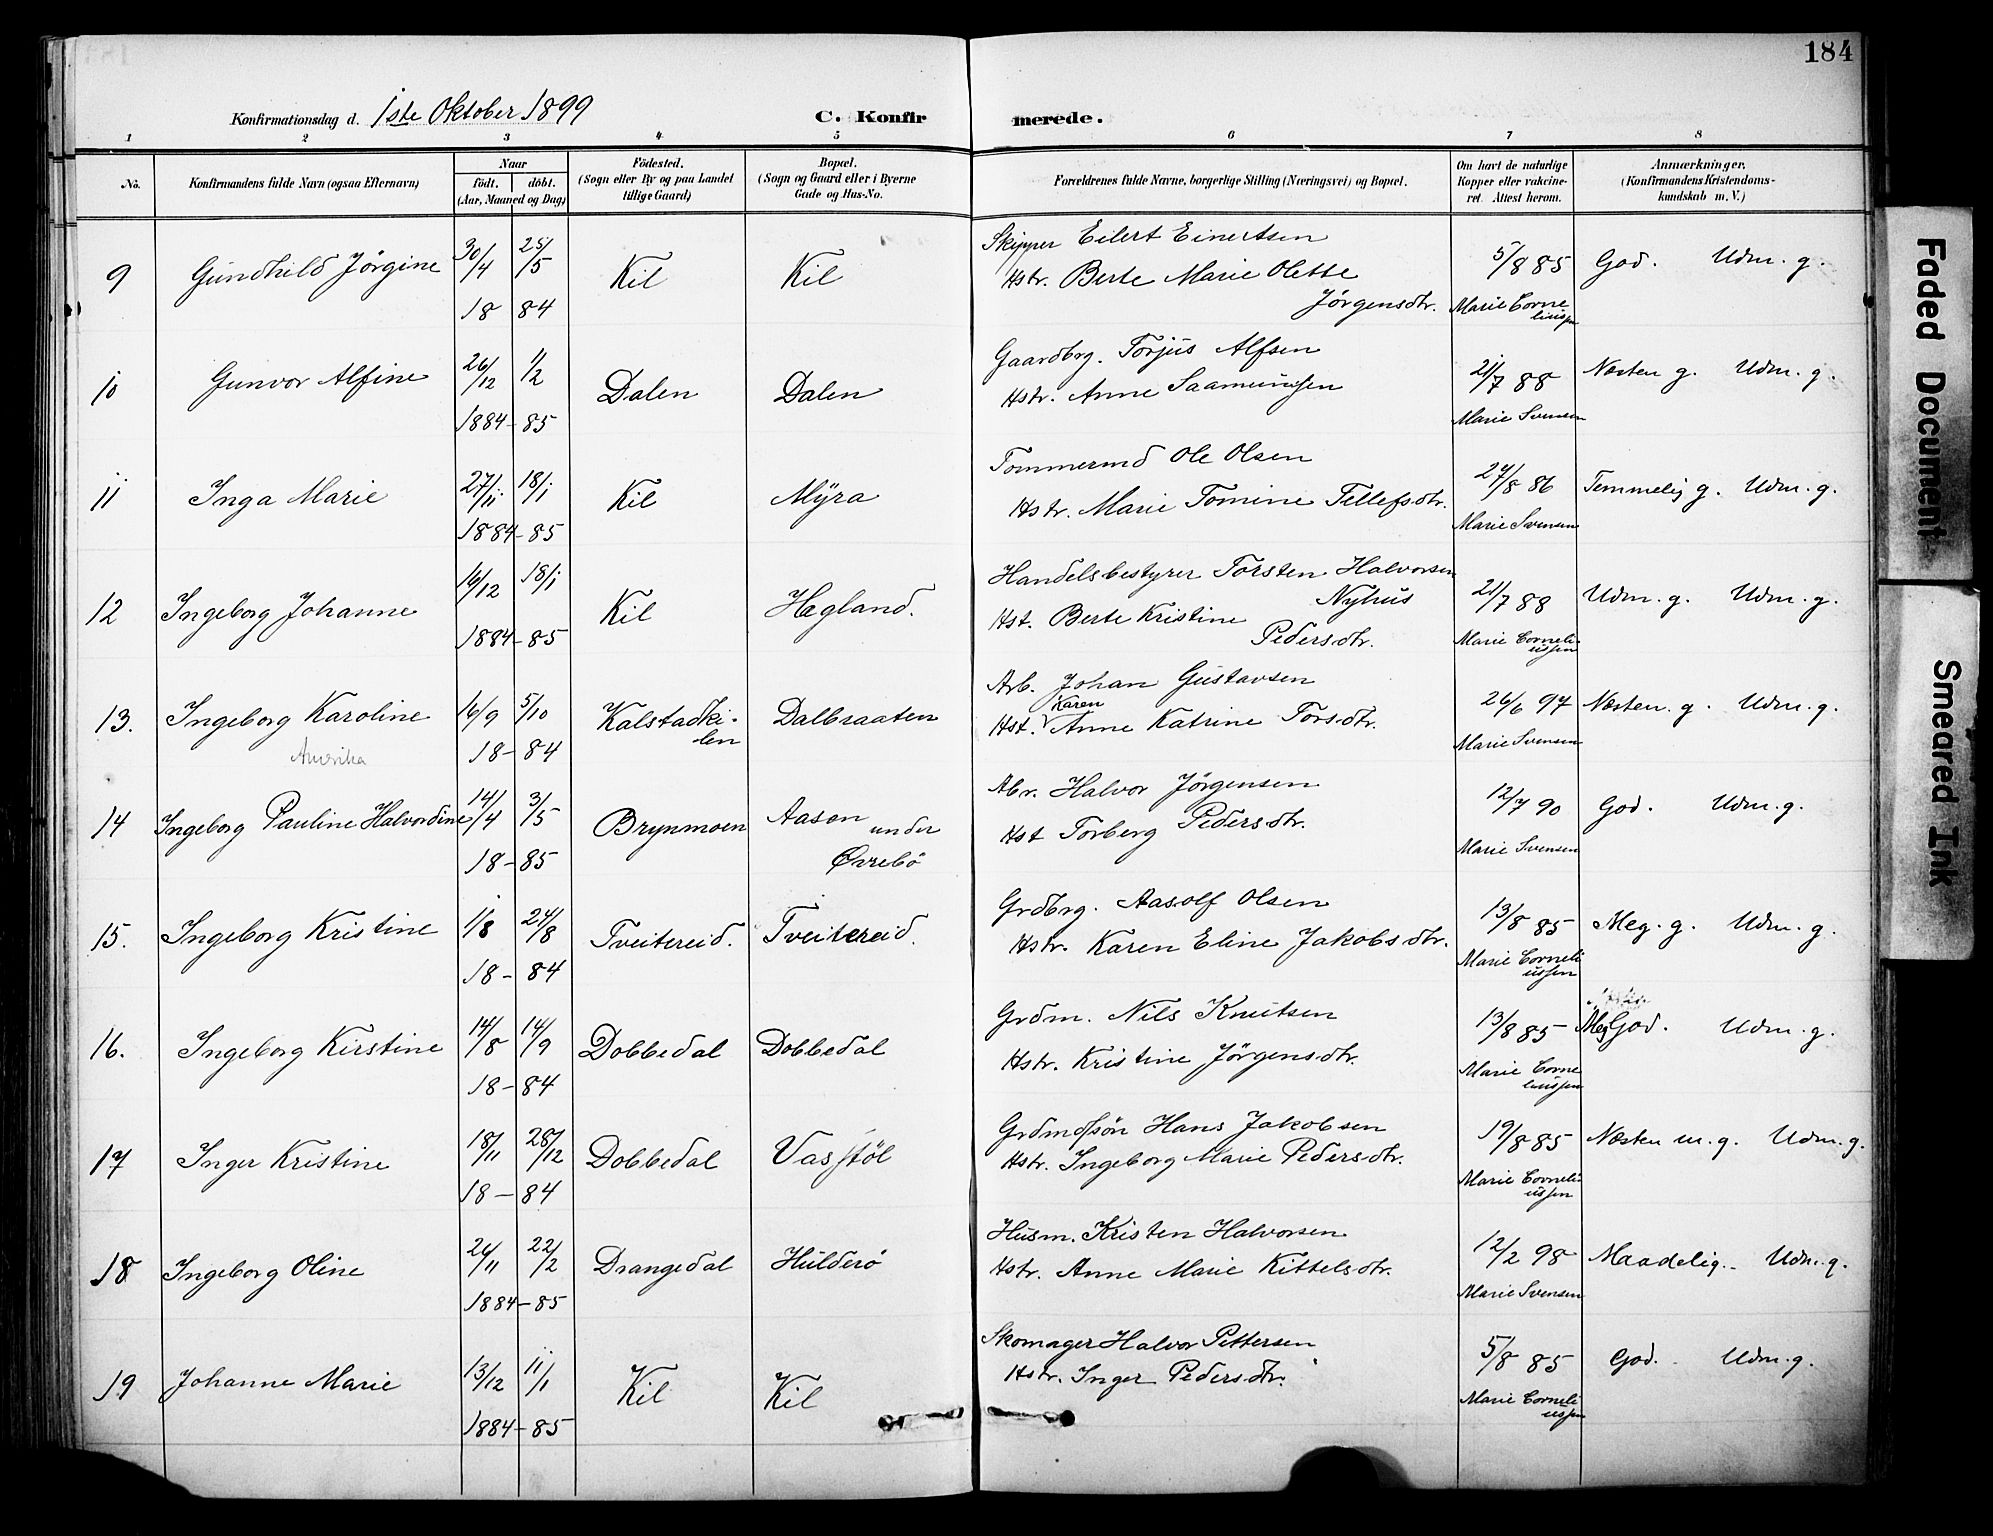 184
Konfirmationsdag d. 1ste Oktober 1899
C. Konfirmerede.
1 2 3 4 5 6 7 8
No.
Konfirmandens fulde Navn (ogsaa Efternavn)
Naar
födt. döbt.
(Aar, Maaned og Dag)
Födested.
(Sogn eller By og paa Landet
tillige Gaard)
Bopæl.
(Sogn og Gaard eller i Byerne
Gade og Hus-No.
Forældrenes fulde Navne, borgerlige Stilling (Næringsvei) og Bopæl.
Om havt de naturlige
Kopper eller vakcine-
ret. Attest herom.
Anmærkninger,
(Konfirmandens Kristendoms-
kundskab m. V.)
9 Gundhild Jörgine 30/4 25/5 Kil Kil Skipper Eilert Einertsen 5/8 85 God. Udm. g.
18 84 Hstr. Berte Marie Olette
Jörgensdtr. Marie Corne
liussen
10 Gunvor Alfine 26/12 1/2 Dalen Dalen Gaardbrg. Torjus Alfsen 21/7 88 Næsten g. Udm. g.
1884-85 Hstr. Anne Saamundsen Marie Svensen
11 Inga Marie 27/11 18/1 Kil Myra Tømmermd Ole Olsen 27/8 86 Temmelig g. Udm. g.
1884-85 Hstr. Marie Tomine Tellefsdtr. Marie Svensen
12 Ingeborg Johanne 16/12 18/1 Kil Hegland. Handelsbestyrer Torsten Halvorsen
Nyhus 21/7 88 Udm. g. Udm. g.
1884-85 Hst. Berte Kristine
Pedersdtr. Marie Corneli-
ussen
13. Ingeborg Karoline 16/9 5/10 Kalstadki-
len Dalbraaten Arb. Johan Gustavsen 26/6 97 Næsten. g. Udm. g.
Amerika 18-84 Hst. Karen Anne Katrine Torsdtr. Marie Svensen
14 Ingeborg Pauline Halvordine 14/4 3/5 Brynmoen Aasen under
Øvrebö Abr. Halvor Jörgensen 12/7 90 God. Udm. g.
18-85 Hst Torberg Pedersdtr. Marie Svensen
15. Ingeborg Kristine 1/8 24/8 Tveitereid. Tveitereid. Grdbrg. Aasolf Olsen 13/8 85 Meg. g. Udm. g.
18-84 Hstr. Karen Eline Jakobsdtr. Marie Corneli
ussen
16. Ingeborg Kirstine 14/8 14/9 Dobbedal Dobbedal Grdm. Nils Knutsen 13/8 85 Meg God. Udm. g.
18-84 Hstr. Kristine Jörgensdtr. Marie Corne
liussen
17 Inger Kristine 18/11 28/12 Dobbedal Vasstöl Grdmdssön Hans Jakobsen 19/8 85 Næsten m. g. Udm. g.
18-84 Hstr. Ingeborg Marie Pedersdtr. Marie Corneli
ussen
18 Ingeborg Oline 26/11 22/2 Drangedal Hulderö Husm. Kristen Halvorsen 12/2 98 Maadelig. Udm. g.
1884-85 Hstr. Anne Marie Kittelsdtr. Marie Svensen
19 Johanne Marie 13/12 11/1 Kil Kil Skomager Halvor Pettersen 5/8 85 God. Udm. g.
1884-85 Hstr. Inger Pedersdtr. Marie Corneli
ussen
Faded Document
Smeared Ink